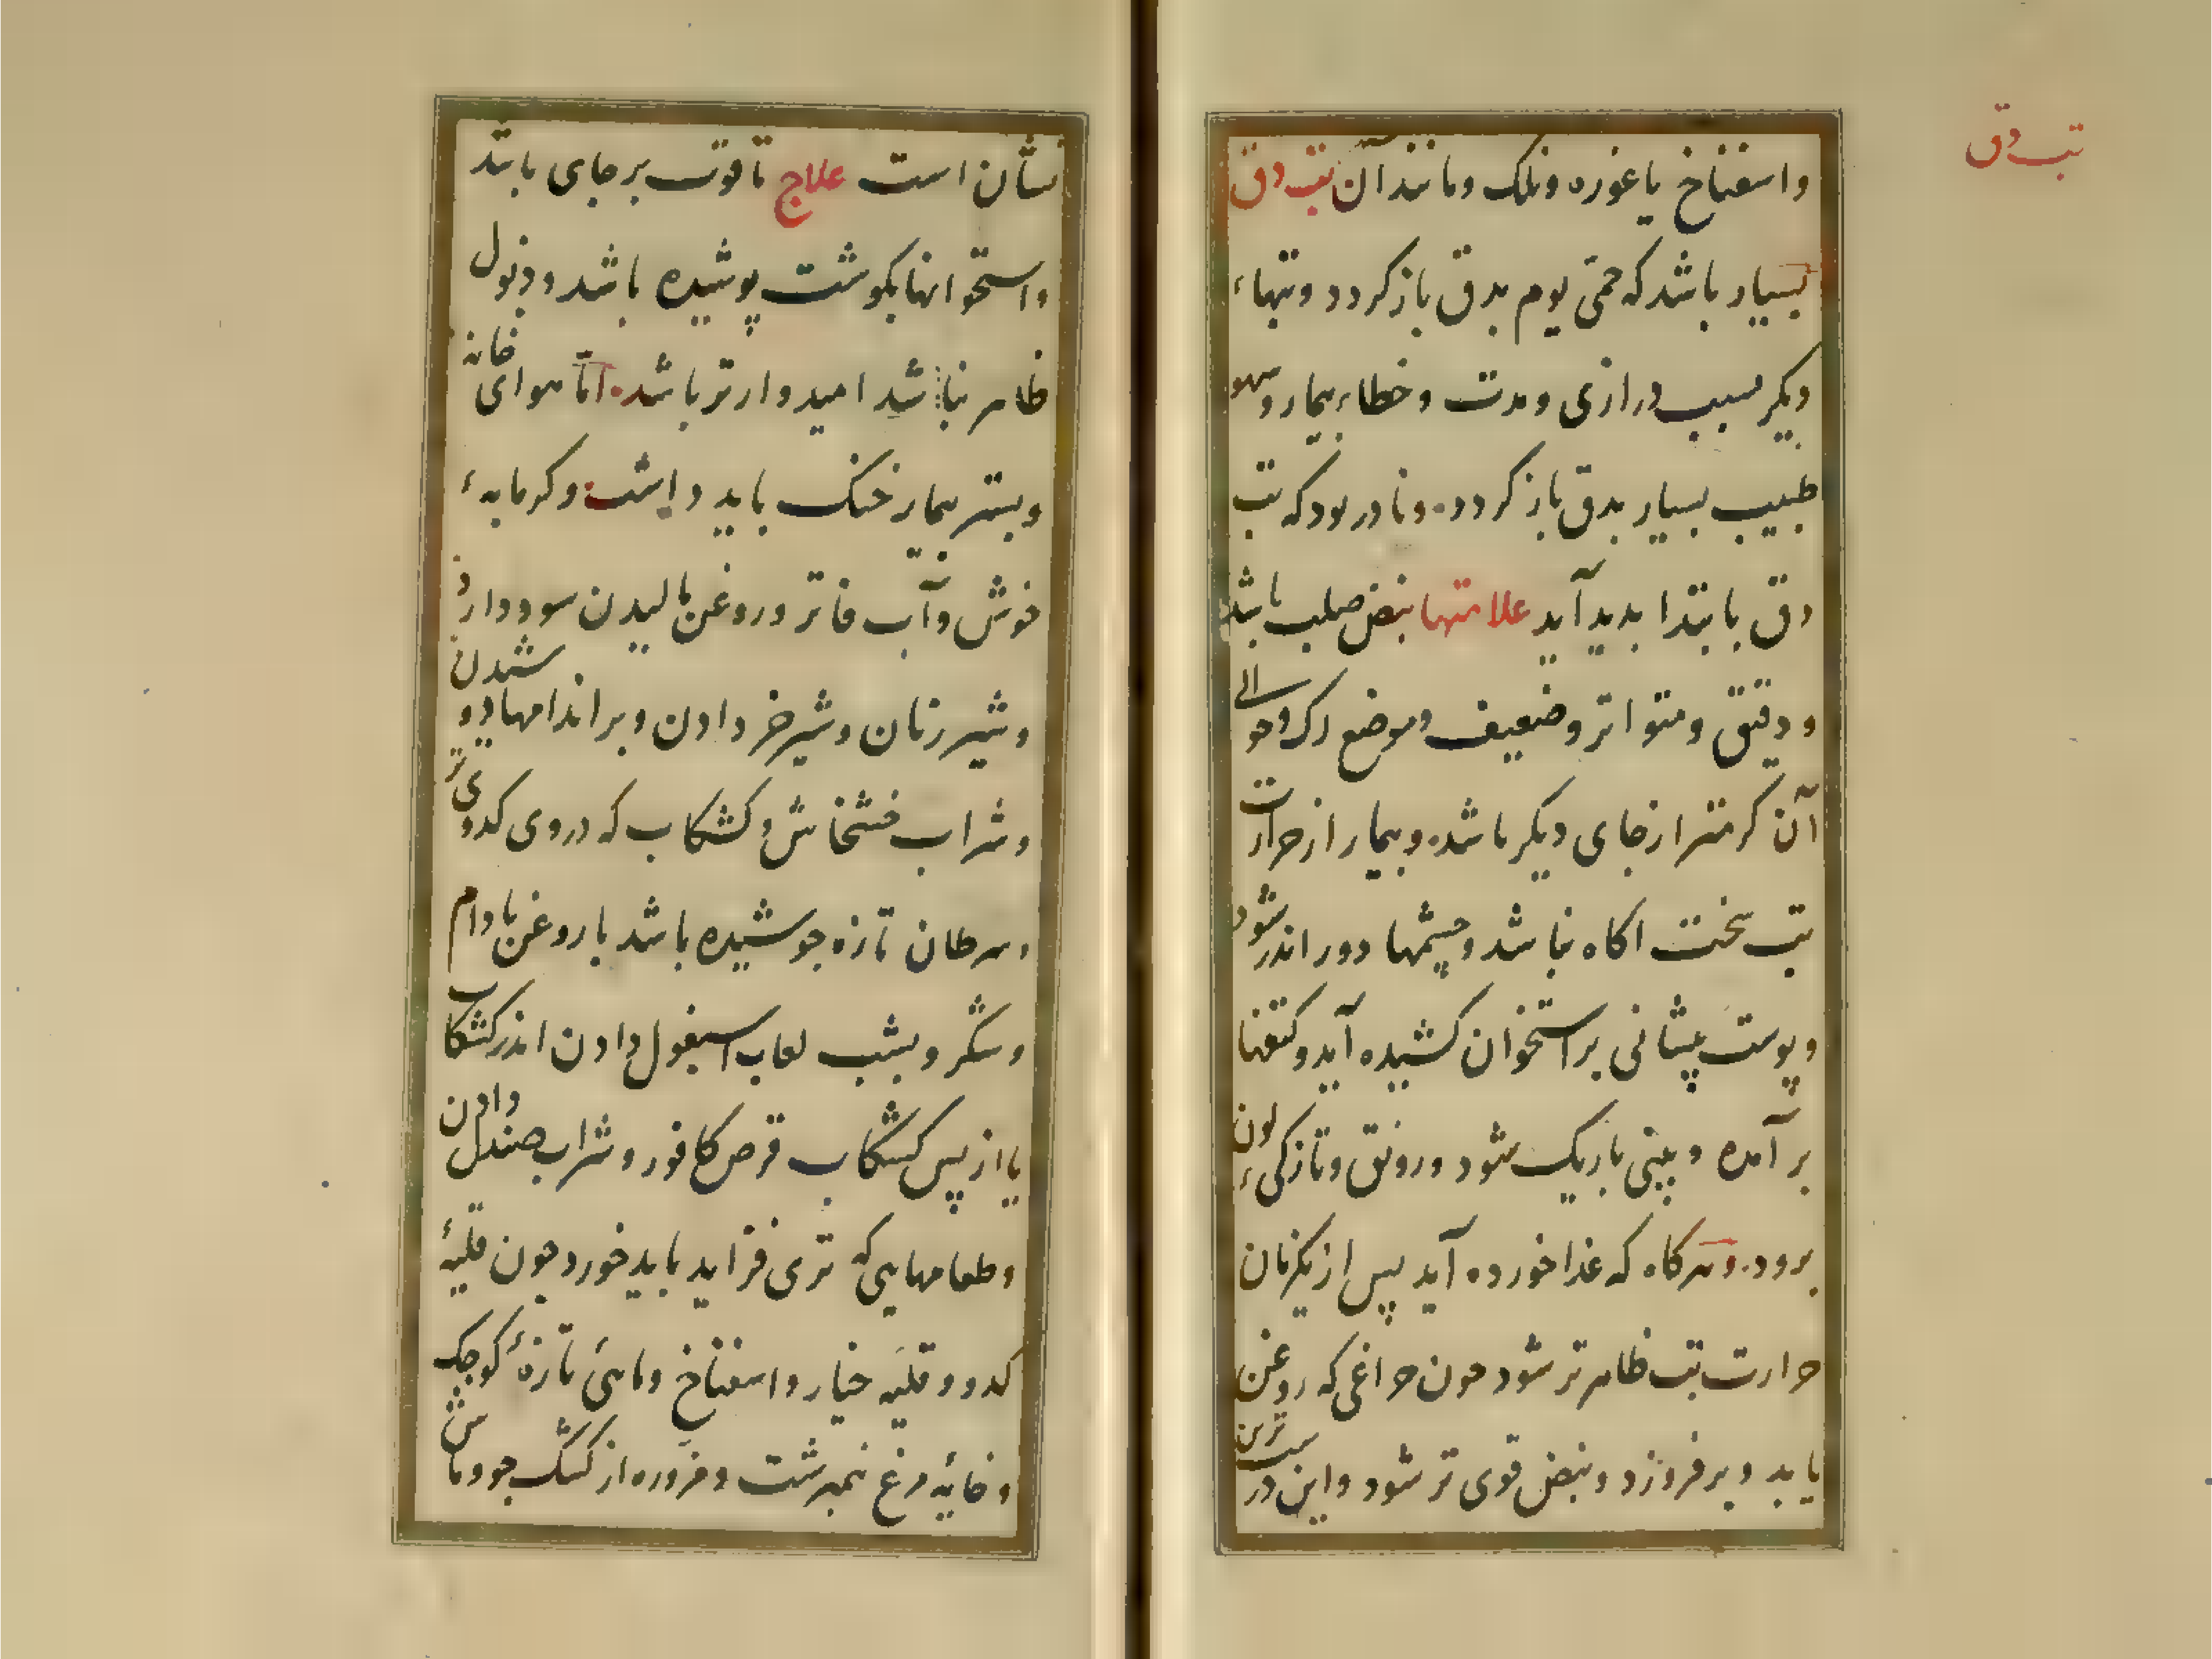 تب دق
واسفناخ یا غوره ونلک ومانند آن تب دق
بسیار باشد که حمی یوم بدق باز کردد وتبهاء
دیکر بسبب درازی ومدت وخطاء بیمار وسهو
طبیب بسیار بدق باز کردد. ونادر بود که تب
دق بابتدا بدید آید علامتها نبض صلب باشد
ودقیق ومتواتر وضعیف وموضع رک وحوالی
آن کرمتر از جای دیکر باشد. وبیمار از حرارت
تب سخت اکاه نباشد وچشمها دور اندر شود
وپوست پیشانی بر استخوان کشیده آید وکتفها
بر آمده وبینی باریک شود ورونق وتازکیء لون
برود. وهرکاه که غذا خورده آید پس از یکزمان
حرارت تب ظاهرتر شود چون چراغی که روغن
یابد وبرفروزد ونبض قوی تر شود واین درست ترین
نشان است علاج تا قوت بر جای باشد
واستخوانها بکوشت پوشیده باشد وذبول
ظاهر نباشد امیدوارتر باشد. اما هوای خانه
وبستر بیمار خنک باید داشت وکرمابهء
خوش وآب فاتر وروغن مالیدن سود دارد
وشیر زنان وشیر خر دادن وبر اندامها دوشیدن
وشراب خشخاش وکشکاب که در وی کدوی تر
وسرطان تازه جوشیده باشد با روغن بادام
وشکر وبشب لعاب اسبغول دادن اندر کشکاب
یا از پس کشکاب قرص کافور وشراب صندل دادن
وطعامهایی که تری فزاید باید خورد چون قلیهٔ
کدو وقلیه خیار واسفناخ وماهیٔ تازهٔ کوچک
وخایه مرغ نیمبرشت ومزوره از کشک جو وماش